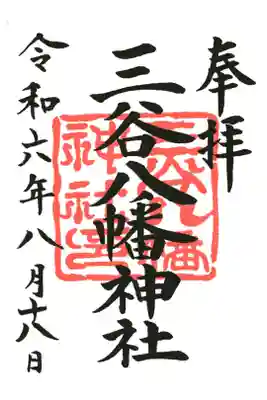 奉拝
三谷八幡神社
令和六年八月十八日